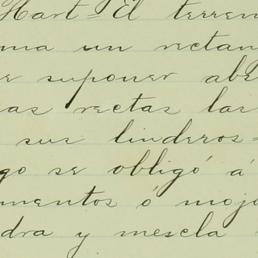 Hart = El terren
ma un rectan
e suponer abi
as rectas las
sus linderos =
go se obligó á
mentos ó mojo
dra y mescla